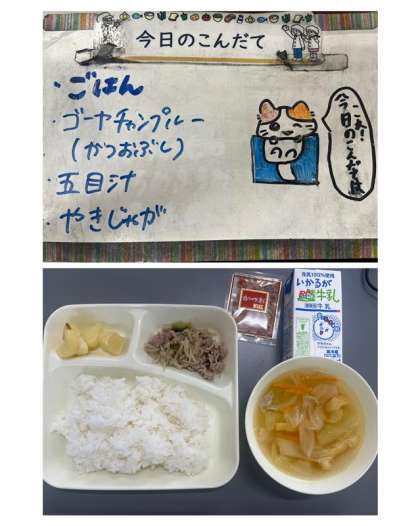 今日のこんだて
・ごはん
・ゴーヤチャンプルー
(かつおぶし)
・五目汁
・やきじゃが
今日のこんだては
かつお
生乳100%使用
いかるが
牛乳